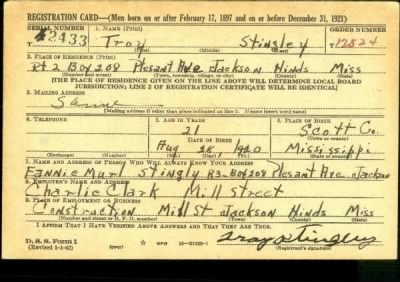 REGISTRATION CARD—(Men born on or after February 17, 1897 and on or before December 31, 1921)
SERIAL NUMBER 1. NAME (Print) ORDER NUMBER
T 2433 Troy Stingley 12824
(First) (Middle) (Last)
2. PLACE OF RESIDENCE (Print)
Rt 2 Box 208 Plesant Ave Jackson Hinds Miss
(Number and street) (Town, township, village, or city) (County) (State)
[THE PLACE OF RESIDENCE GIVEN ON THE LINE ABOVE WILL DETERMINE LOCAL BOARD
JURISDICTION; LINE 2 OF REGISTRATION CERTIFICATE WILL BE IDENTICAL]
3. MAILING ADDRESS
Same
[Mailing address if other than place indicated on line 2. If same insert word same]
4. TELEPHONE 5. AGE IN YEARS 6. PLACE OF BIRTH
21 Scott Co.
DATE OF BIRTH (Town or county)
Aug 28 1920 Mississippi
(Exchange) (Number) (Mo.) (Day) (Yr.) (State or country)
7. NAME AND ADDRESS OF PERSON WHO WILL ALWAYS KNOW YOUR ADDRESS
Fannie Murl Stingly Box 208 Plesant Ave Jackson
8. EMPLOYER'S NAME AND ADDRESS
Charlie Clark Mill Street
9. PLACE OF EMPLOYMENT OR BUSINESS
Construction Mill St Jackson Hinds Miss
(Number and street or R. F. D. number) (Town) (County) (State)
I AFFIRM THAT I HAVE VERIFIED ABOVE ANSWERS AND THAT THEY ARE TRUE.
D. S. S. Form 1
(Revised 1-1-42) GPO Troy Stingley
(Registrant's signature)